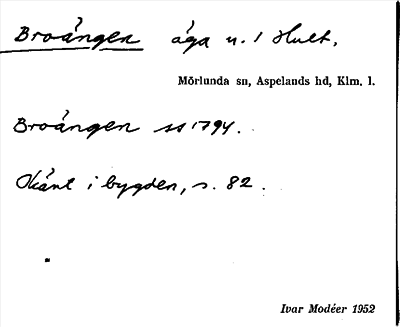 Broången äga u. 1 Hult.
Mörlunda sn, Aspelands hd, Klm. l.
Broången ss 1794.
Okänt i bygden, s. 82.
Ivar Modéer 1952